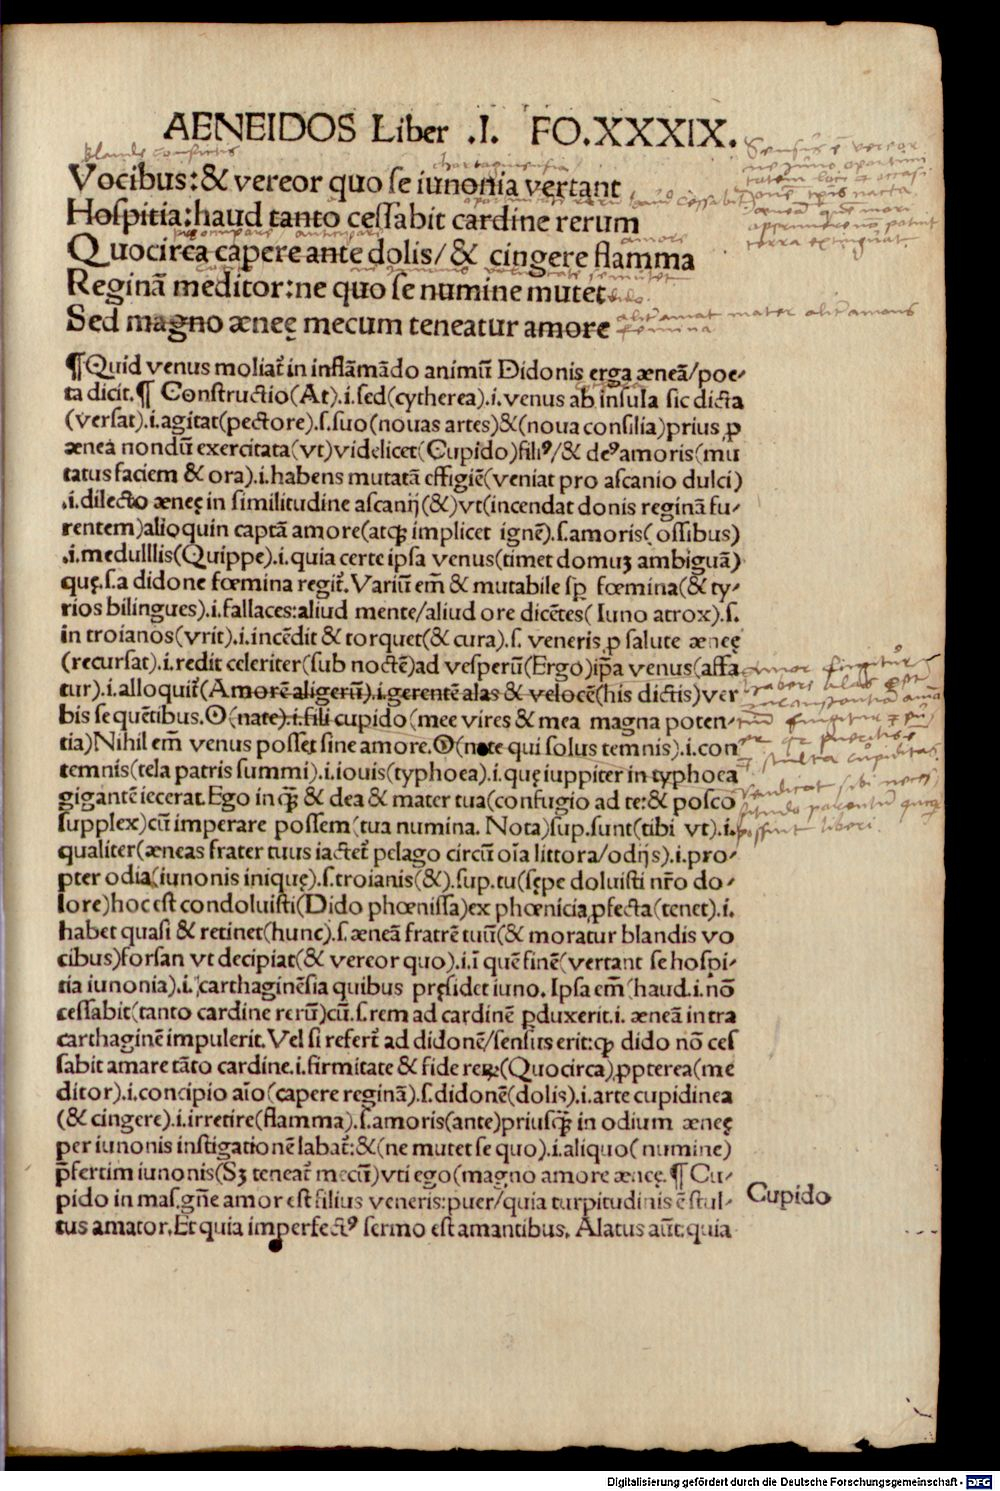 AENEIDOS Liber .I. FO.XXXIX.
blande conficiis
Vocibus:& vereor quo se iunonia vertant
Hospitia:haud tanto cessabit cardine rerum
Quocirca capere ante dolis/& cingere flamma
amore
Reginā meditor:ne quo se numine mutet
Sed magno æneę mecum teneatur amore
femina
¶Quid venus moliat᷑ in inflāmādo animū Didonis erga æneā/poe-
ta dicit.¶ Constructio(At).i.sed(cytherea).i.venus ab insula sic dicta
(versat).i.agitat(pectore).s.suo(nouas artes)&(noua consilia)prius ꝓ
ænea nondū exercitata(vt)videlicet(Cupido)filiꝰ/& deꝰamoris(mu
tatus faciem & ora).i.habens mutatā effigiē(veniat pro ascanio dulci)
.i.dilecto æneę in similitudine ascanij(&)vt(incendat donis reginā fu-
rentem)alioquin captā amore(atqꝫ implicet ignē).s.amoris(ossibus)
.i.medulllis(Quippe).i.quia certe ipsa venus(timet domuꝫ ambiguā)
quę.s.a didone fœmina regit᷑.Variū em̄ & mutabile sp̄ fœmina(& ty-
rios bilingues).i.fallaces:aliud mente/aliud ore dicētes(Iuno atrox).s.
in troianos(vrit).i.incēdit & torquet(& cura).s. veneris ꝓ salute æneę
(recursat).i.redit celeriter(sub noctē)ad vesperū(Ergo)ip̄a venus(affa
tur).i.alloquit᷑(Amorē aligerū).i.gerentē alas & velocē(his dictis)ver
bis sequētibus.O(nate).i.fili cupido(mee vires & mea magna poten-
tia)Nihil em̄ venus posset sine amore.O(nate qui solus temnis).i.con
temnis(tela patris summi).i.iouis(typhoea).i.quę iuppiter in typhoea
gigantē iecerat.Ego inqꝫ̄ & dea & mater tua(confugio ad te:& posco
supplex)cū imperare possem(tua numina. Nota)sup.sunt(tibi vt).i.
qualiter(æneas frater tuus iactet᷑ pelago circū oīa littora/odijs).i.pro-
pter odia(iunonis iniquę).s.troianis(&).sup.tu(sępe doluisti nr̄o do-
lore)hoc est condoluisti(Dido phœnissa)ex phœnicia ꝓfecta(tenet).i.
habet quasi & retinet(hunc).s.æneā fratrē tuū(& moratur blandis vo
cibus)forsan vt decipiat(& vereor quo).i.ī quē finē(vertant se hospi-
tia iunonia).i.carthaginēsia quibus pręsidet iuno. Ipsa em̄(haud.i.nō
cessabit(tanto cardine rerū)cū.s.rem ad cardinē ꝑduxerit.i. æneā intra
carthaginē impulerit. Vel si refert᷑ ad didonē/sensus erit:qꝙ dido nō ces
sabit amare tāto cardine.i.firmitate & fide reꝝ(Quocirca)ꝓpterea(me
ditor).i.concipio aīo(capere reginā).s.didonē(dolis).i.arte cupidinea
(& cingere).i.irretire(flamma).s.amoris(ante)priusqꝫ̄ in odium æneę
per iunonis instigationē labat᷑:&(ne mutet se quo).i.aliquo(numine)
p̄sertim iunonis(Sꝫ teneat᷑ mecū)vti ego(magno amore æneę.¶ Cu-
pido in mas.gn̄e amor est filius veneris:puer/quia turpitudinis ē stul-
Cupido
tus amator.Et quia imperfectꝰ sermo est amantibus. Alatus aūt.quia
Digitalisierung gefördert durch die Deutsche Forschungsgemeinschaft - DFG